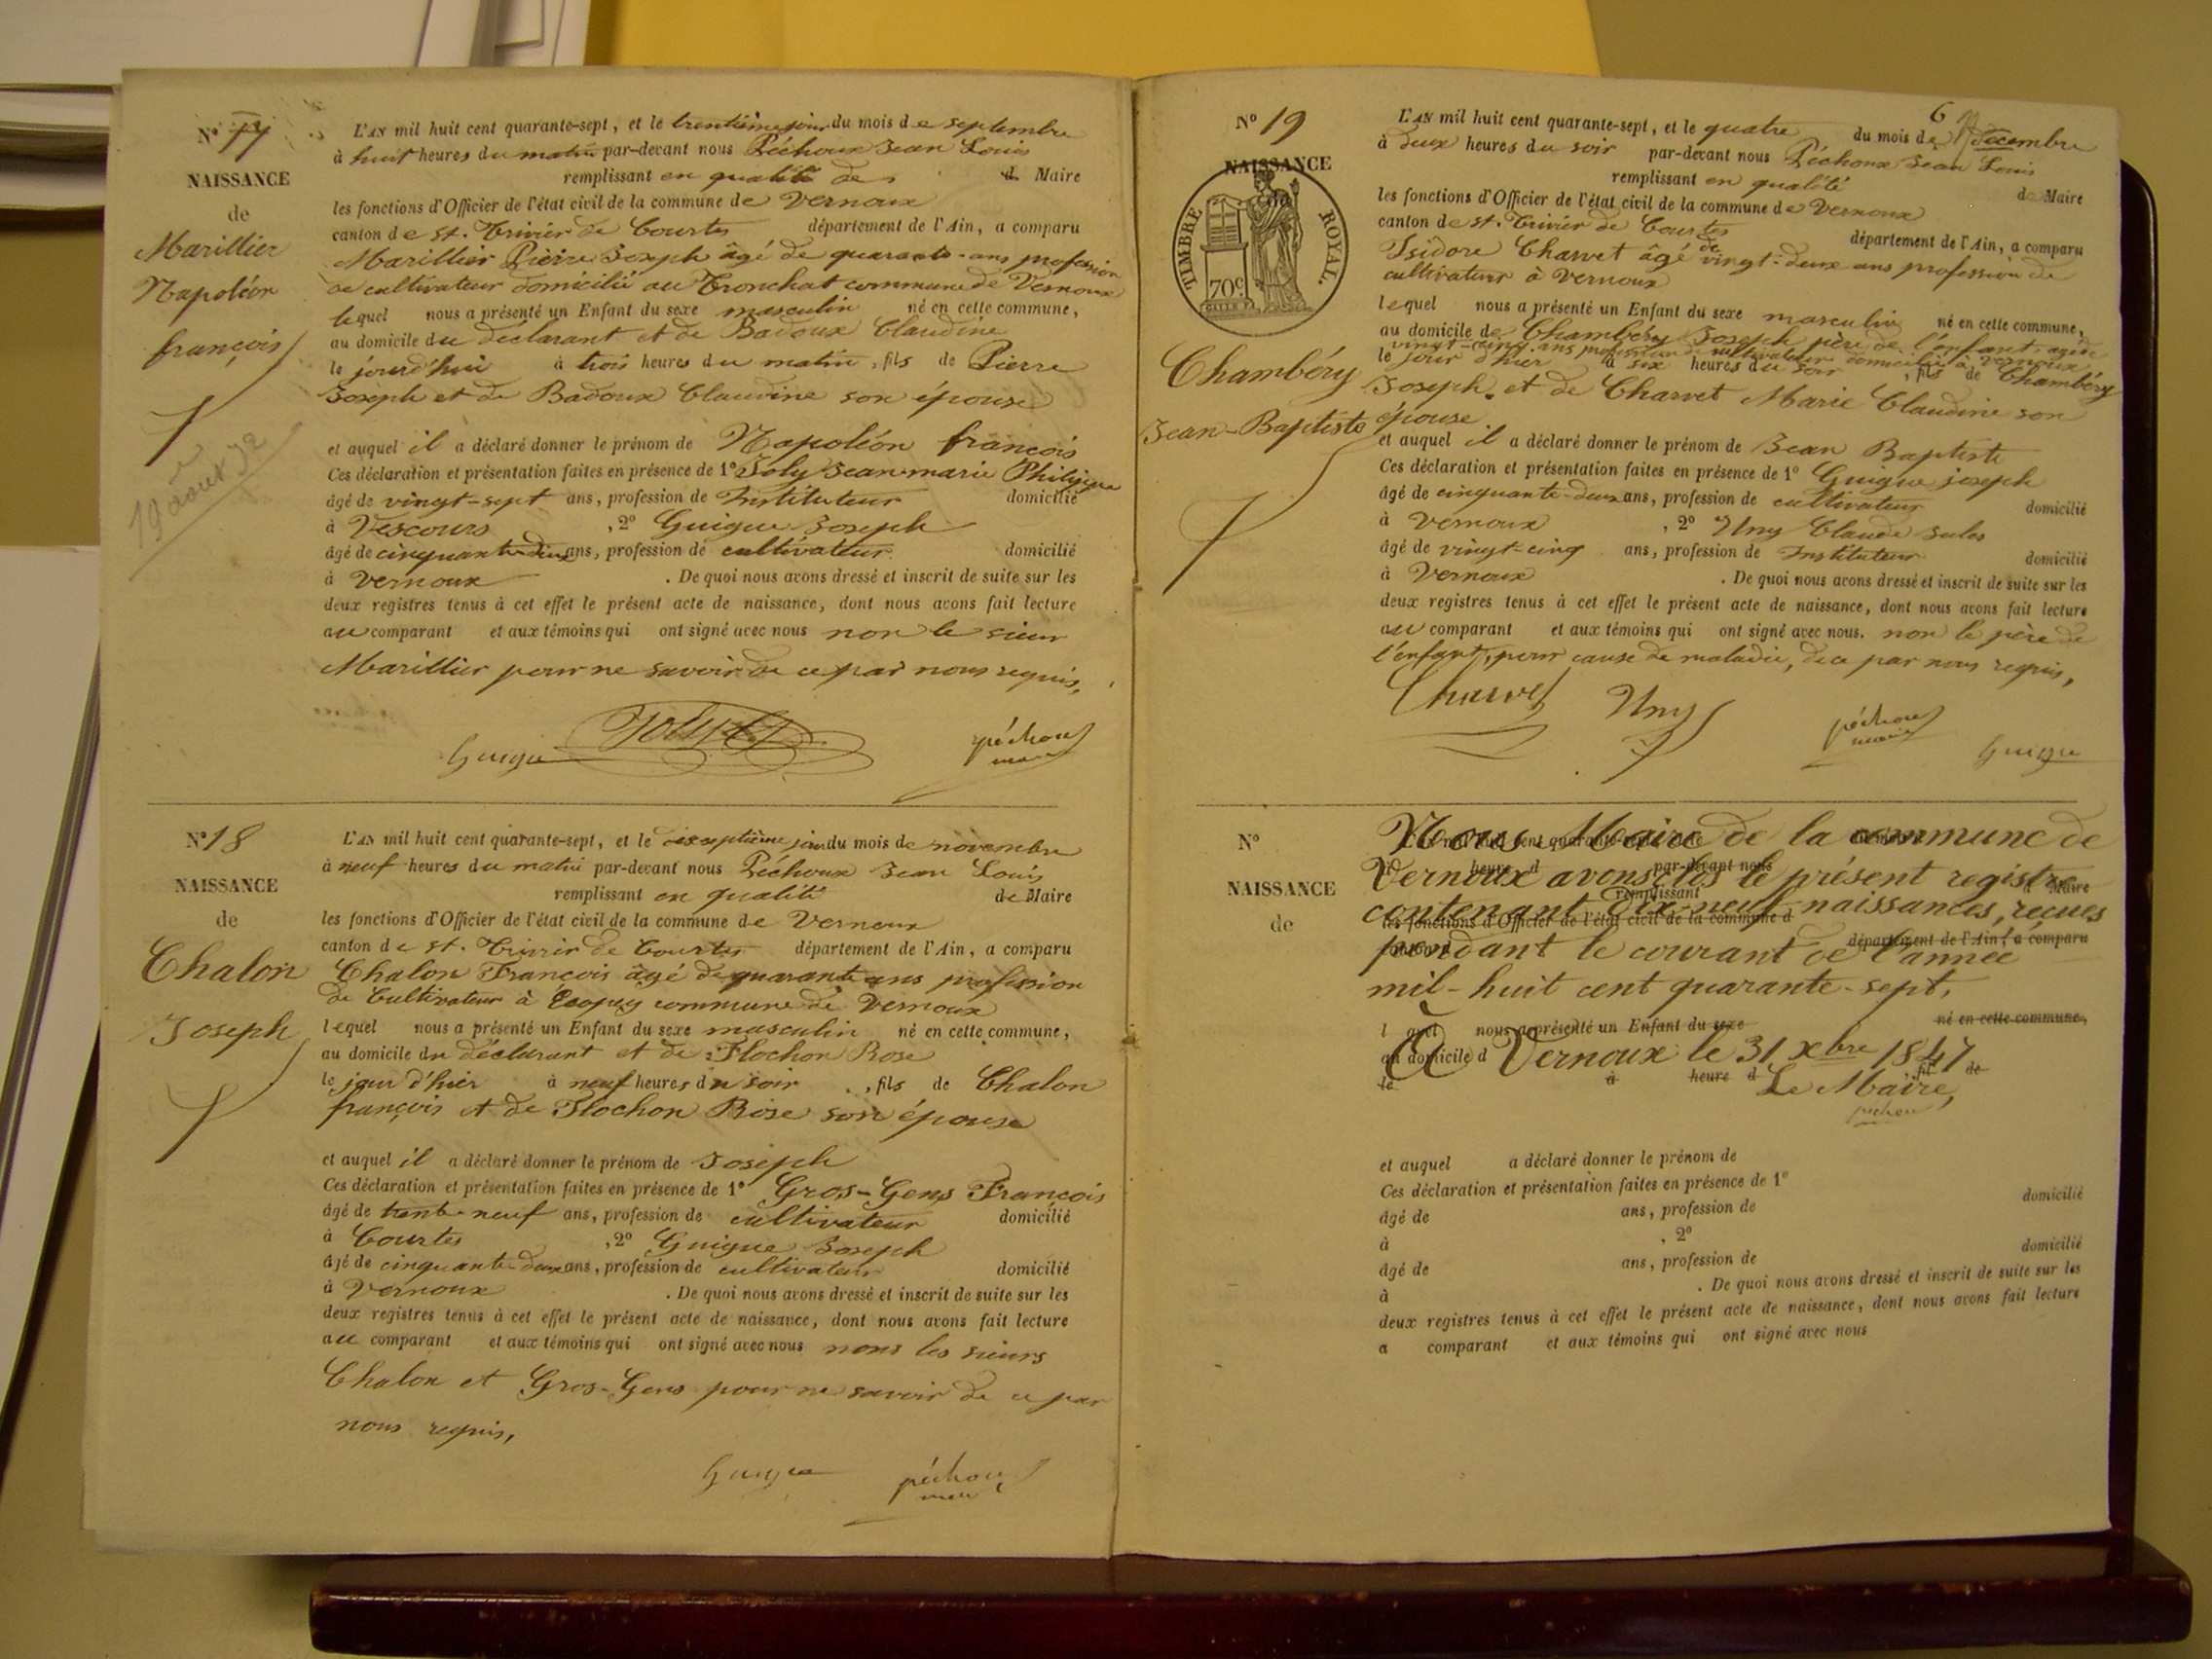 N° 17
NAISSANCE
de
Marillier
Napoléon
françois
19 août 72
L'AN mil huit cent quarante-sept, et le trentième jour du mois de septembre
à huit heures du matin par-devant nous Péchoux Jean Louis
remplissant en qualité de d Maire
les fonctions d'Officier de l'état civil de la commune de Vernoux
canton de St. Trivier de Courtes département de l'Ain, a comparu
Marillier Pierre Joseph âgé de quarante-ans profession
de cultivateur domicilié au Tronchat commune de Vernoux
lequel nous a présenté un Enfant du sexe masculin né en cette commune,
au domicile du déclarant et de Badoux Claudine
le jourd'hui à trois heures du matin, fils de Pierre
Joseph et de Badoux Claudine son épouse
et auquel il a déclaré donner le prénom de Napoléon françois
Ces déclaration et présentation faites en présence de 1° Joly Jean-marie Philippe
âgé de vingt-sept ans, profession de Instituteur domicilié
à Vescours , 2° Guigue Joseph
âgé de cinquante-deux ans, profession de cultivateur domicilié
à Vernoux . De quoi nous avons dressé et inscrit de suite sur les
deux registres tenus à cet effet le présent acte de naissance, dont nous avons fait lecture
au comparant et aux témoins qui ont signé avec nous non le sieur
Marillier pour ne savoir de ce par nous requis,
Guigue Joly péchoux
maire
N° 18
NAISSANCE
de
Chalon
Joseph
L'AN mil huit cent quarante-sept, et le dixseptième jour du mois de novembre
à neuf heures du matin par-devant nous Péchoux Jean Louis
remplissant en qualité de Maire
les fonctions d'Officier de l'état civil de la commune de Vernoux
canton de St. Trivier de Courtes département de l'Ain, a comparu
Chalon François âgé de quarante ans profession
de Cultivateur à Ecopey commune de Vernoux
lequel nous a présenté un Enfant du sexe masculin né en cette commune,
au domicile du déclarant et de Flochon Rose
le jour d'hier à neuf heures du soir , fils de Chalon
françois et de Flochon Rose son épouse
et auquel il a déclaré donner le prénom de Joseph
Ces déclaration et présentation faites en présence de 1° Gros-Gens François
âgé de trente-neuf ans, profession de cultivateur domicilié
à Courtes , 2° Guigue Joseph
âgé de cinquante-deux ans, profession de cultivateur domicilié
à Vernoux . De quoi nous avons dressé et inscrit de suite sur les
deux registres tenus à cet effet le présent acte de naissance, dont nous avons fait lecture
au comparant et aux témoins qui ont signé avec nous nons les sieurs
Chalon et Gros-Gens pour ne savoir de ce par
nous requis,
Guigue péchoux
maire
6
N° 19
NAISSANCE
TIMBRE ROYAL.
70c
Chambéry
Jean-Baptiste
L'AN mil huit cent quarante-sept, et le quatre du mois de Décembre
à deux heures du soir par-devant nous Péchoux Jean Louis
remplissant en qualité de Maire
les fonctions d'Officier de l'état civil de la commune de Vernoux
canton de St. Trivier de Courtes département de l'Ain, a comparu
Isidore Charvet âgé de vingt-deux ans profession de
cultivateur à Vernoux
lequel nous a présenté un Enfant du sexe masculin né en cette commune,
au domicile de Chambéry Joseph père de l'enfant, agé de
vingt-cinq ans profession de cultivateur domicilié à Vernoux
le jour d'hier à six heures du soir , fils de Chambéry
Joseph et de Charvet Marie Claudine son
épouse
et auquel il a déclaré donner le prénom de Jean Baptiste
Ces déclaration et présentation faites en présence de 1° Guigue joseph
âgé de cinquante-deux ans, profession de cultivateur domicilié
à Vernoux , 2° Uny Claude Jules
âgé de vingt-cinq ans, profession de Instituteur domicilié
à Vernoux . De quoi nous avons dressé et inscrit de suite sur les
deux registres tenus à cet effet le présent acte de naissance, dont nous avons fait lecture
au comparant et aux témoins qui ont signé avec nous. non le père de
l'enfant, pour cause de maladie, de ce par nous requis,
Charvet Uny péchoux
maire Guigue
N°
NAISSANCE
de
Nous Maire de la commune de
Vernoux avons clos le présent registre
contenant dix-neuf naissances, reçues
pendant le courant de l'année
mil-huit cent quarante-sept,
l quel nous a présenté un Enfant du sexe né en cette commune,
A Vernoux le 31 xbre 1847
au domicile d
le à heure d fil de
Le Maire,
péchoux
et auquel a déclaré donner le prénom de
Ces déclaration et présentation faites en présence de 1°
âgé de ans, profession de domicilié
à , 2°
âgé de ans, profession de domicilié
à . De quoi nous avons dressé et inscrit de suite sur les
deux registres tenus à cet effet le présent acte de naissance, dont nous avons fait lecture
a comparant et aux témoins qui ont signé avec nous